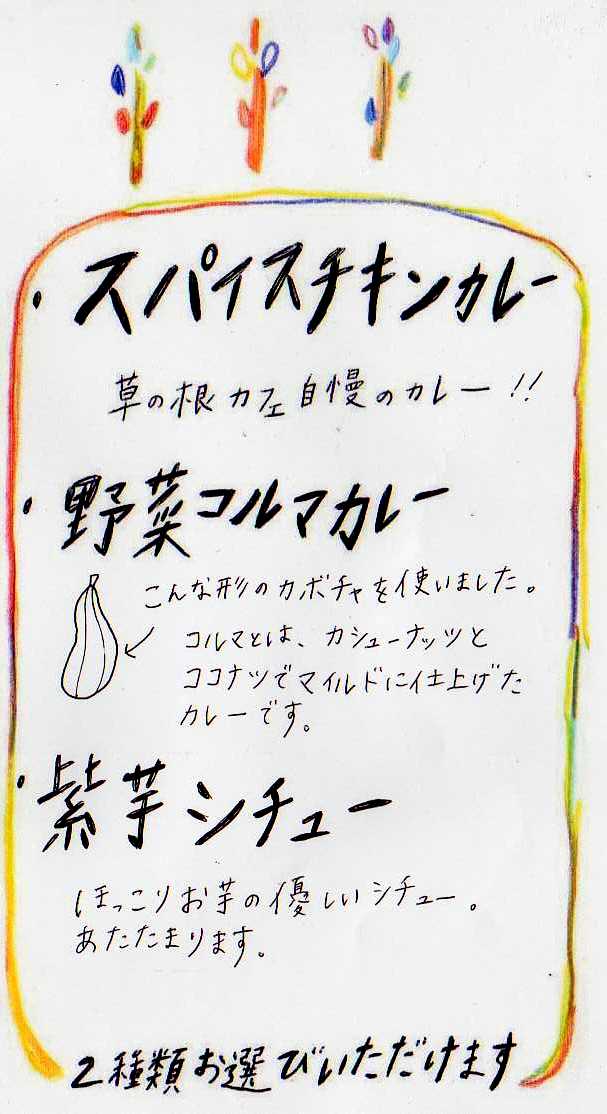 ・スパイスチキンカレー
草の根カフェ自慢のカレー!!
・野菜コルマカレー
こんな形のカボチャを使いました。
コルマとは、カシューナッツと
ココナツでマイルドに仕上げた
カレーです。
・紫芋シチュー
ほっこりお芋の優しいシチュー。
あたたまります。
2種類お選びいただけます